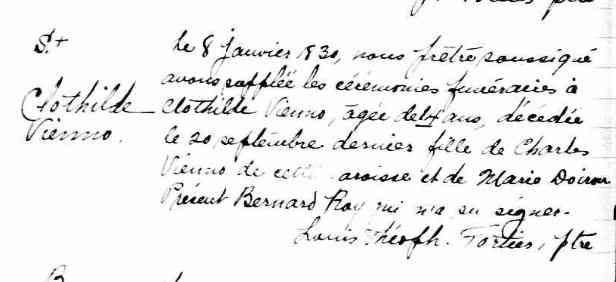 S.t
Clothilde
Vienno.
le 8 janvier 1830, nous prêtre soussigné
avons suppléé les cérémonies funéraires à
Clothilde Vienno, âgée de 4 ans, décédée
le 20 septembre dernier fille de Charles
Vienno de cette paroisse et de Marie Doiron
Présent Bernard Roy qui n'a su signer.
Louis Théoph. Fortier, ptre